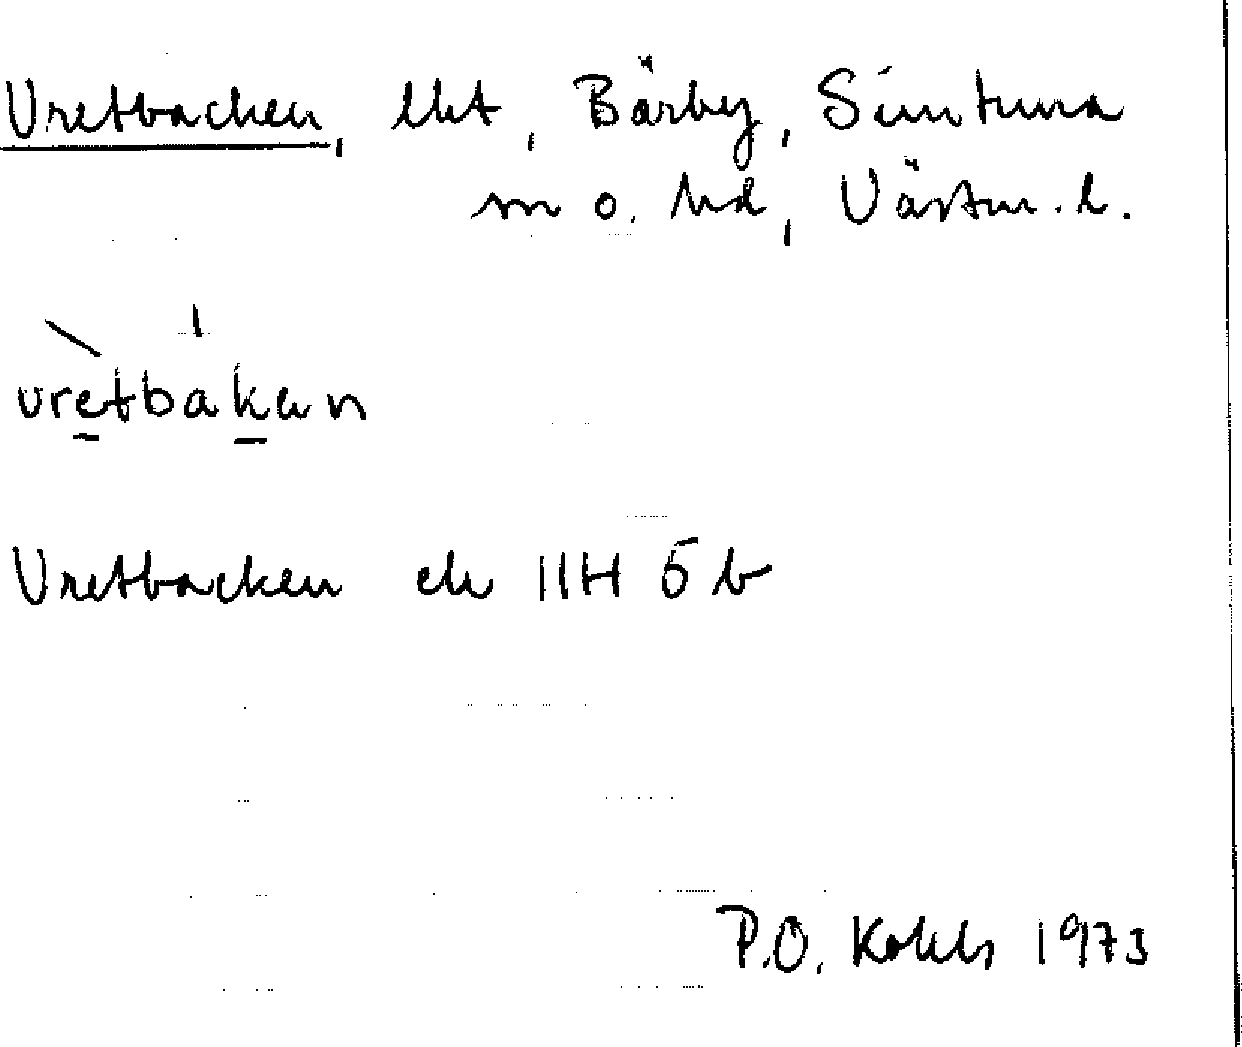 Vretbacken, lht, Bärby, Simtuna
sn o. hd, Västm. l.
vretbakan
Vretbacken ek 11H 5 b
P.O. 1973